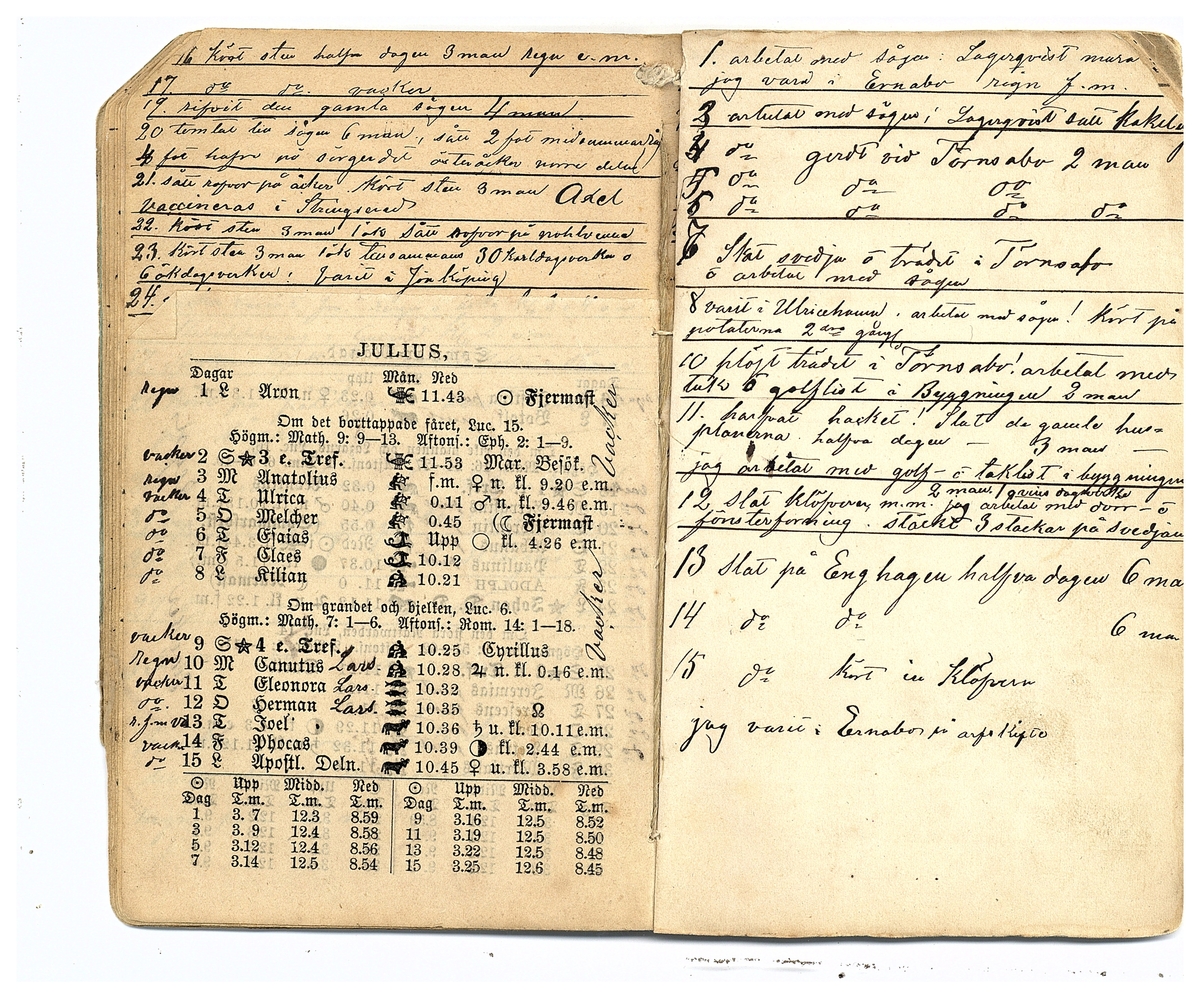 16 Kört sten halfva dagen 3 man regn e.m.
17. do do. vacker
19. rifvit den gamla sågen 4 man
20 tomtat til sågen 6 man, sått 2 fat midsommarråg
4 fat hafre på norre delen
21. sått rofvor på åcker. Kört sten 3 man Axel
vaccineras i Strengsered
22. Kört sten 3 man 1 ök sått rofvor på
23. Kört sten 3 man 1 ök tilsammans 30 karldagsverken o
6 ökdagsverken! varit i Jönköping
24.
JULIUS,
Dagar Mån. Ned
Regn 1 L Aron 11.43 ☉ Fjermast
Om det borttappade fåret, Luc. 15.
Högm.: Math. 9: 9—13. Aftons.: Eph. 2: 1—9.
vacker 2 S★3 e. Tref. 11.53 Mar. Besök.
regn 3 M Anatolius f.m. ♀ n. kl. 9.20 e.m.
vacker 4 T Ulrica 0.11 ♂ n. kl. 9.46 e.m.
do 5 O Melcher 0.45 (☾ Fjermast
do 6 T Esaias Upp ○ kl. 4.26 e.m.
do 7 F Claes 10.12
do 8 L Kilian 10.21
vacker
Om grandet och bjelken, Luc. 6.
Högm.: Math. 7: 1—6. Aftons.: Rom. 14: 1—18.
vacker
vacker 9 S★4 e. Tref. 10.25 Cyrillus
Regn 10 M Canutus Lars. 10.28 ♃ n. kl. 0.16 e.m.
vacker 11 T Eleonora Lars. 10.32
do. 12 O Herman Lars. 10.35 ☊
r.f.m va 13 T Joel 10.36 ♄ u. kl. 10.11 e.m.
vacker 14 F Phocas 10.39 ◑ kl. 2.44 e.m.
do 15 L Apostl. Deln. 10.45 ♀ u. kl. 3.58 e.m.
☉ Upp Midd. Ned ☉ Upp Midd. Ned
Dag T.m. T.m. T.m. Dag T.m. T.m. T.m.
1. 3. 7 12.3 8.59 9. 3.16 12.5 8.52
3 3. 9 12.4 8.58 11 3.19 12.5 8.50
5. 3.12 12.4 8.56 13 3.22 12.5 8.48
7. 3.14 12.5 8.54 15 3.25 12.6 8.45
1. arbetat med sågen: Lagerqvist mura
jag varit i Ernabo regn f.m.
3 arbetat med sågen; Lagerqvist satt kakelu
4 do gerdt vid Törnsabo 2 man
5 do do do
6 do do do do
7 Slat svedja o trädet i Törnsabo
o arbetat med sågen
8 varit i Ulricehamn. arbetat med sågen! Kört på
potaterna 2dra gång
10 plöjt trädet i Törnsabo! arbetat med
tak o golflist i Byggningen 2 man
11. harfvat hacket! Slat de gamle hus=
planerna halfva dagen — 3 man —
jag arbetat med golf- o taklist i byggningen
12 slat Klöfveren m.m. 2 man, jag arbetat med dörr- o
fönsterforning. stackd 3 stackar på svedjan
13 Slat på Enghagen halfva dagen 6 ma
14 do do 6 man
15 do Kört in Klöfvern
jag varit i Ernabo på arfskifte